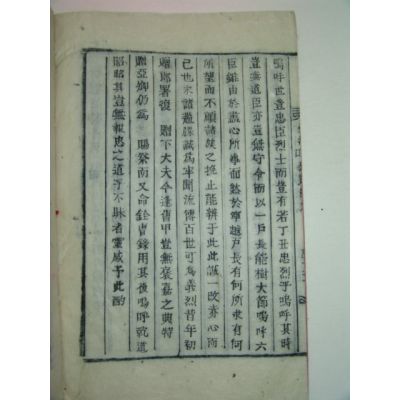 嗚呼世豈忠臣烈士而豈有若丁丑忠烈乎嗚呼其時
豈無道臣亦豈無守令而以一戶長能樹大節嗚呼六
臣雖由於盡心所事而越於寧越戶長有何所求有何
所望而不顧諸族之挽止能辨于此此誠一改亦心而
已也宋諸避錄誠爲牢聞流傳百世可爲義烈昔年初
贈郎署後 贈下大夫今逢舊甲豈無褒嘉之典特
贈亞卿仍爲 賜祭南又命銓曹錄用其後嗚呼祝道
昭昭其豈無報忠之道乎不昧者靈咸予此酌